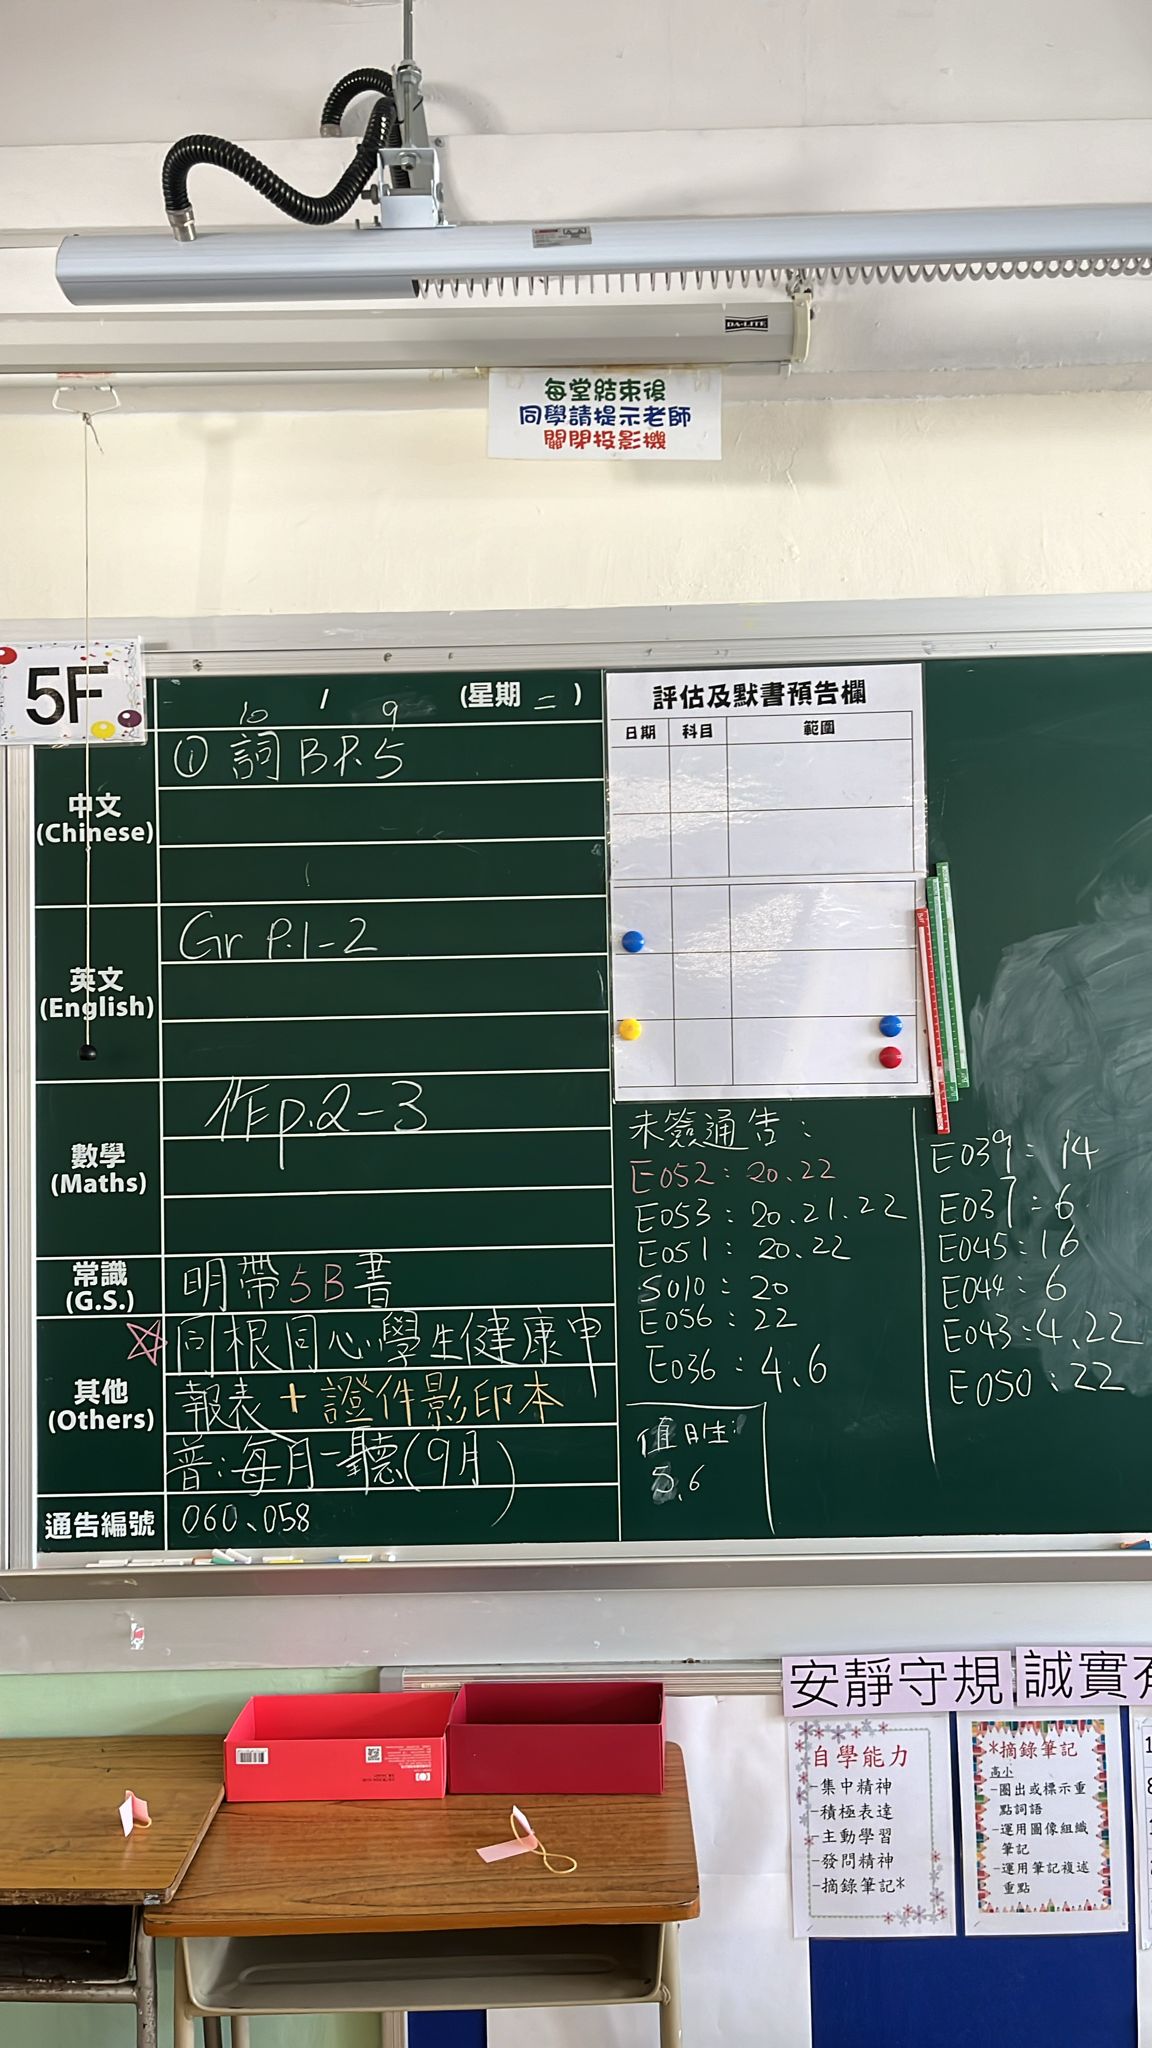 DA-LITE
每堂結束後
同學請提示老師
關閉投影機
5F
10 / 9 (星期 二 )
中文
(Chinese)
① 詞 B P.5
英文
(English)
Gr P.1-2
數學
(Maths)
作 p.2-3
常識
(G.S.)
明帶5B書
其他
(Others)
同根同心學生健康申
報表 + 證件影印本
普:每月一聽(9月)
通告編號
060、058
評估及默書預告欄
日期 科目 範圍
未簽通告:
E052: 20.22
E053: 20.21.22
E051: 20.22
S010: 20
E056: 22
E036: 4.6
E039: 14
E037: 6
E045: 16
E044: 6
E043: 4.22
E050: 22
值日生:
5.6
安靜守規
誠實有
自學能力
-集中精神
-積極表達
-主動學習
-發問精神
-摘錄筆記*
*摘錄筆記
高小
-圈出或標示重
點詞語
-運用圖像組織
筆記
-運用筆記複述
重點